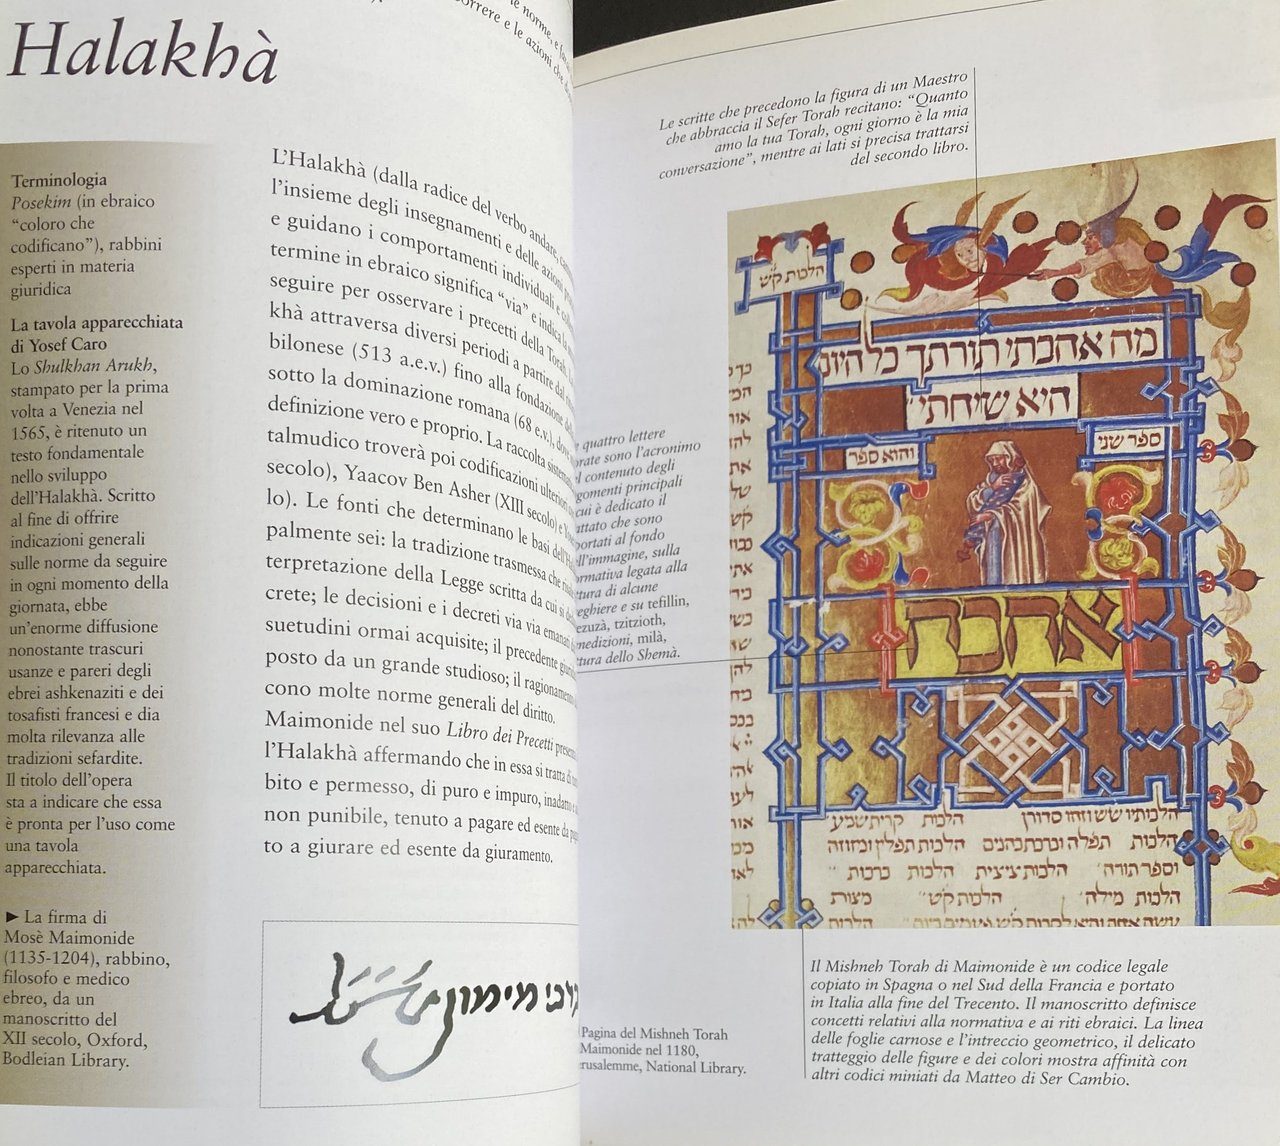 Halakhà
norme, e
correre e le azioni che
Terminologia
Posekim (in ebraico
“coloro che
codificano”), rabbini
esperti in materia
giuridica
La tavola apparecchiata
di Yosef Caro
Lo Shulkhan Arukh,
stampato per la prima
volta a Venezia nel
1565, è ritenuto un
testo fondamentale
nello sviluppo
dell’Halakhà. Scritto
al fine di offrire
indicazioni generali
sulle norme da seguire
in ogni momento della
giornata, ebbe
un’enorme diffusione
nonostante trascuri
usanze e pareri degli
ebrei ashkenaziti e dei
tosafisti francesi e dia
molta rilevanza alle
tradizioni sefardite.
Il titolo dell’opera
sta a indicare che essa
è pronta per l’uso come
una tavola
apparecchiata.
► La firma di
Mosè Maimonide
(1135-1204), rabbino,
filosofo e medico
ebreo, da un
manoscritto del
XII secolo, Oxford,
Bodleian Library.
L’Halakhà (dalla radice del verbo andare,
l’insieme degli insegnamenti e delle azioni
e guidano i comportamenti individuali e
termine in ebraico significa “via” e indica la
seguire per osservare i precetti della Torah.
khà attraversa diversi periodi a partire dal
bilonese (513 a.e.v.) fino alla fondazione
sotto la dominazione romana (68 e.v.), dove
definizione vero e proprio. La raccolta
talmudico troverà poi codificazioni
secolo), Yaacov Ben Asher (XIII secolo) e
lo). Le fonti che determinano le basi
palmente sei: la tradizione trasmessa che
terpretazione della Legge scritta da cui si
crete; le decisioni e i decreti via via emanati
suetudini ormai acquisite; il precedente
posto da un grande studioso; il ragionamento
cono molte norme generali del diritto.
Maimonide nel suo Libro dei Precetti
l’Halakhà affermando che in essa si tratta di
bito e permesso, di puro e impuro,
non punibile, tenuto a pagare ed esente da
to a giurare ed esente da giuramento.
מימון
Le scritte che precedono la figura di un Maestro
che abbraccia il Sefer Torah recitano: “Quanto
amo la tua Torah, ogni giorno è la mia
conversazione”, mentre ai lati si precisa trattarsi
del secondo libro.
quattro lettere
sono l’acronimo
contenuto degli
principali
cui è dedicato il
che sono
al fondo
sulla
legata alla
di alcune
e su tefillin,
tzitzioth,
milà,
dello Shemà.
הלכות קש
מה אהבתי תורתך כל היום
היא שיחתי
והוא ספר
ספר שני
אהבה
הלכות קרית שמע
הלכות תפלה וברכת כהנים הלכות תפלין ומזוזה
וספר תורה הלכות ציצית הלכות ברכות
הלכות מילה
Pagina del Mishneh Torah
Maimonide nel 1180,
National Library.
Il Mishneh Torah di Maimonide è un codice legale
copiato in Spagna o nel Sud della Francia e portato
in Italia alla fine del Trecento. Il manoscritto definisce
concetti relativi alla normativa e ai riti ebraici. La linea
delle foglie carnose e l’intreccio geometrico, il delicato
tratteggio delle figure e dei colori mostra affinità con
altri codici miniati da Matteo di Ser Cambio.